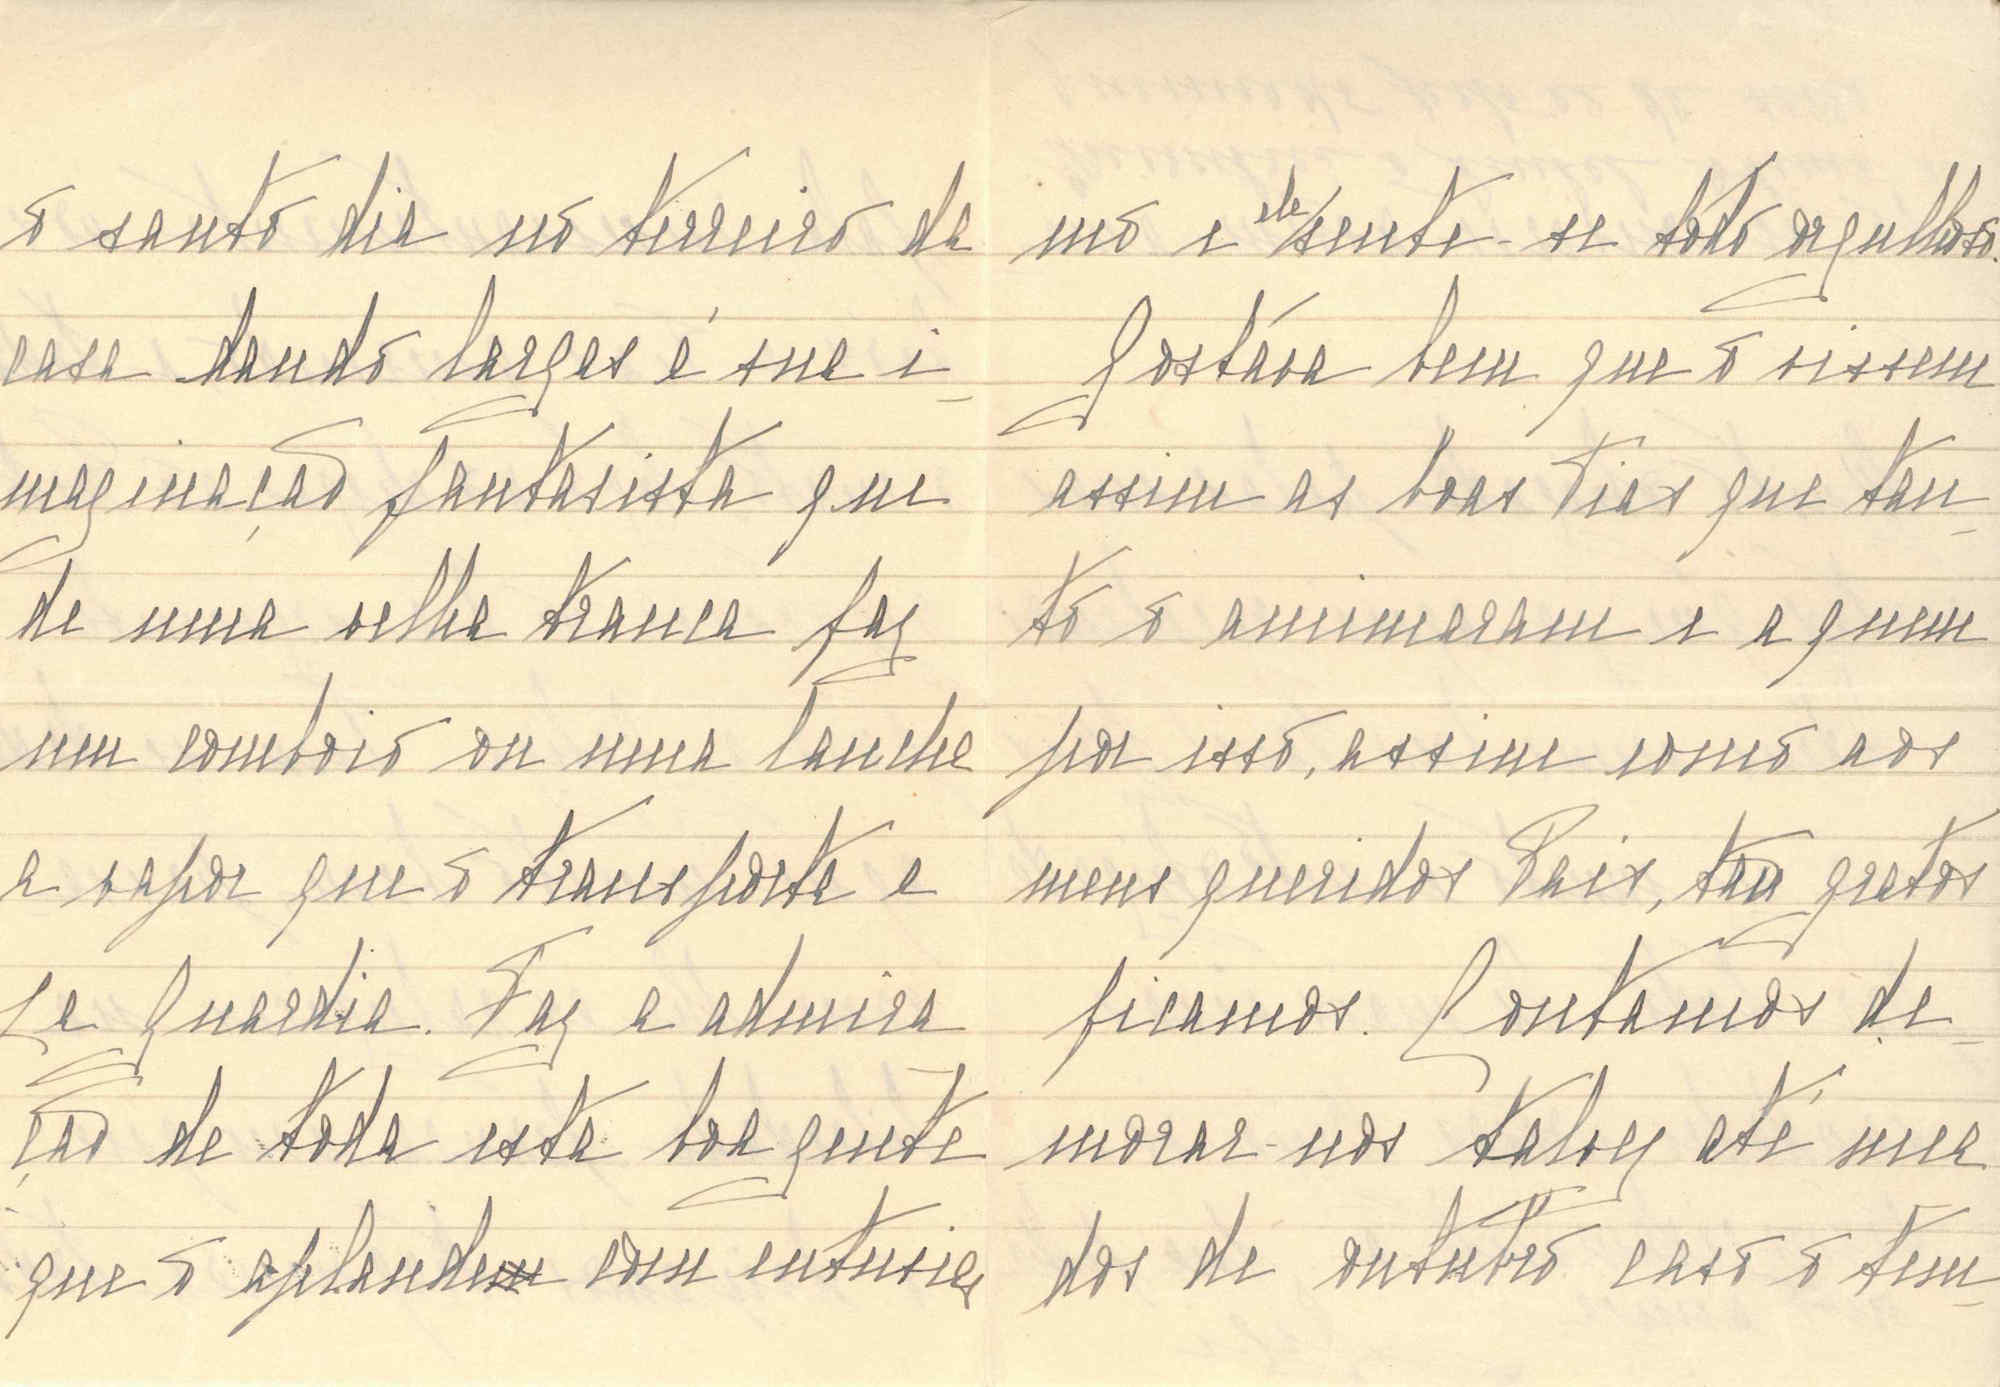 o santo dia no terreiro da
casa dando largas á sua i-
maginação fantasista que
de uma velha tranca faz
um comboio ou uma lancha
a vapor que o transporta a
La Guardia. Faz a admira
ção de toda esta boa gente
que o aplaude com entusias
mo e ele sente-se todo orgulhoso.
Gostáva bem que o vissem
assim as boas Tias que tan-
to o amimaram e a quem
por isso, assim como aos
meus queridos Pais, tão gratos
ficamos. Contamos de-
morar-nos talvez até mea
dos de outubro caso o tem-